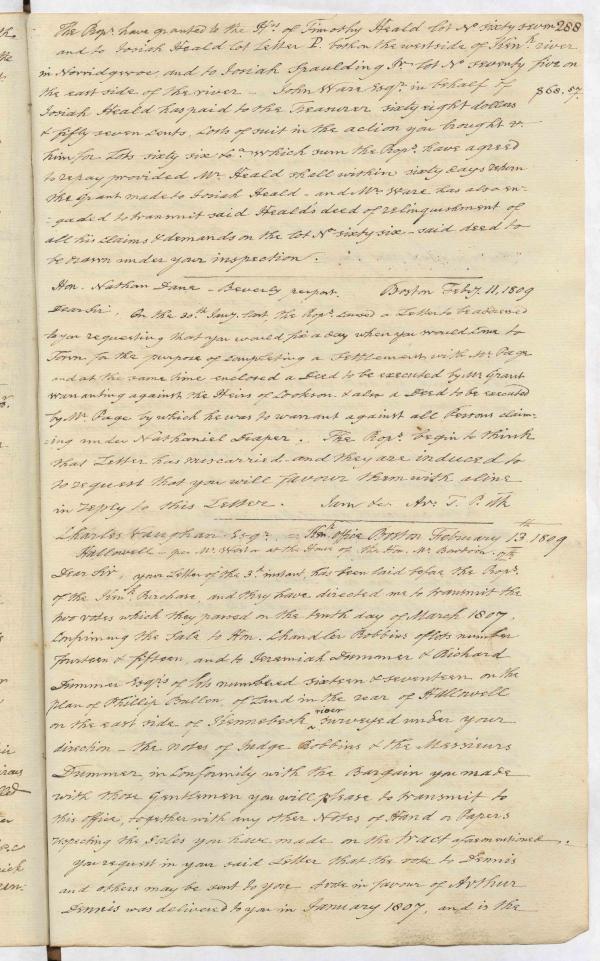 288
The Propˢ. have granted to the Hʳˢ. of Timothy Heald lot Nº sixty seven
and to Josiah Heald lot Letter P. both on the west side of Kenᵏ. river
in Norridgewoc, and to Josiah Spaulding Jʳ. lot Nº seventy five on
the east side of the river – John Ware Esqʳ. in behalf of
Josiah Heald has paid to the Treasurer sixty eight dollars
$68.57.
& fifty seven Cents, Costs of suit in the action you brought v.
him for Lots sixty six &ᶜᵃ. which sum the Propˢ. have agreed
to repay provided Mʳ. Heald shall within sixty days return
the grant made to Josiah Heald – and Mʳ. Ware has also en-
-gaged to transmit said Heald's deed of relinquishment of
all his claims & demands on the lot Nº sixty six – said deed to
be drawn under your inspection.
Hon. Nathan Dane – Beverly per post. Boston Febʸ. 11, 1809
Dear Sir, On the 20ᵗʰ Janʸ. last the Propˢ. caused a Letter to be addressed
to you requesting that you would fix a day when you would come to
Town for the purpose of completing a Settlement with Mʳ. Page
and at the same time enclosed a Deed to be executed by Mʳ Grant
warranting against the Heirs of Cookson & also a Deed to be executed
by Mʳ. Page by which he was to warrant against all Persons claim-
-ing under Nathaniel Draper. The Propˢ. begin to think
that Letter has miscarried and they are induced to
to request that you will favour them with a line
in reply to this Letter. I am &c. A. T. P. Clk
Charles Vaughan Esqʳ. – Kenᵏ. office Boston February 13ᵗʰ 1809
Hallowell – per Mʳ. at the House of the Hon. Mʳ.
Dear Sir, your Letter of the 3ᵈ instant, has been laid before the Propˢ.
of the Kenᵏ. Purchase, and they have directed me to transmit the
two votes which they passed on the tenth day of March 1807,
confirming the Sale to Hon. Chandler Robbins of lots number
fourteen & fifteen, and to Jeremiah Dummer & Richard
Dummer Esqʳˢ of lots numbered sixteen & seventeen on the
plan of Phillip Bullen, of Land in the rear of Hallowell
on the east side of Kennebeck river surveyed under your
direction – the notes of Judge Robbins & the Messieurs
Dummer in Conformity with the Bargain you made
with those Gentlemen you will please to transmit to
this office, together with any other Notes of Hand or Papers
respecting the Sales you have made on the tract aforementioned.
you request in your said Letter that the vote to Dennis
and others may be sent to you. A vote in favour of Arthur
Dennis was delivered to you in January 1807, and is the